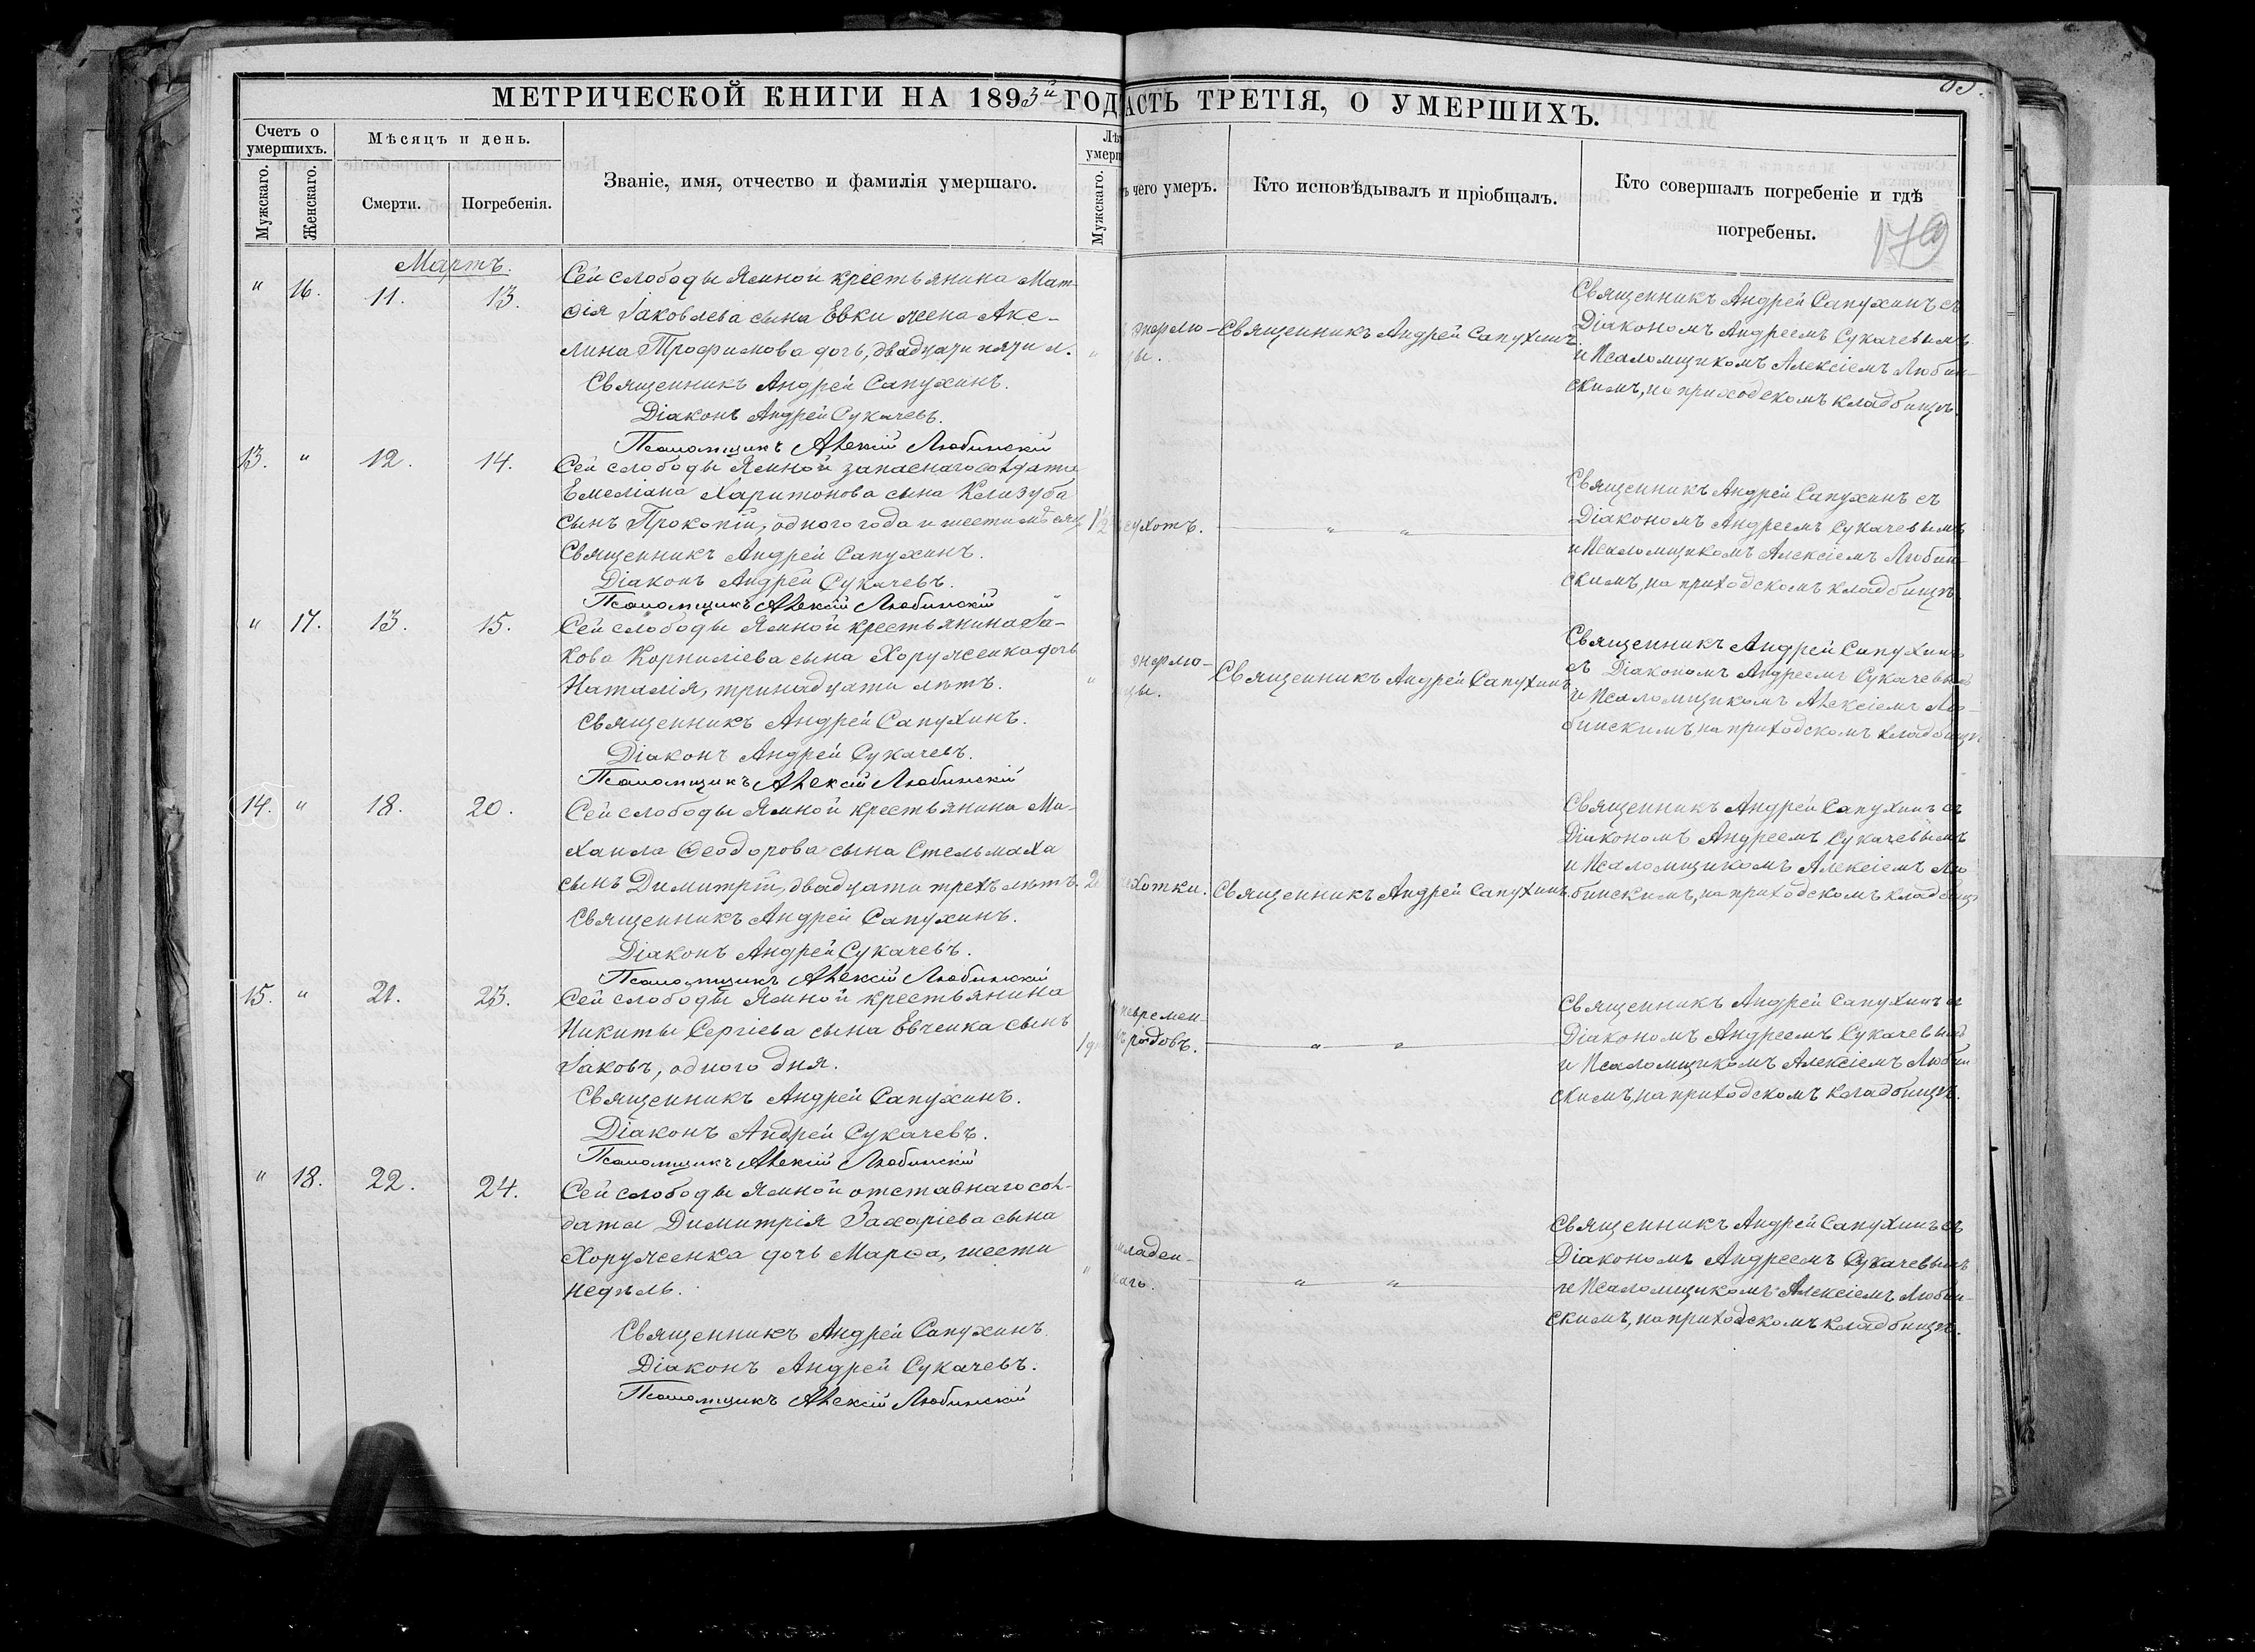 МЕТРИЧЕСКОЙ КНИГИ НА 1893й ГОД
Счетъ о умершихъ.
Мужскаго.
Женскаго.
Мѣсяцъ и день.
Смерти.
Погребенія.
Званіе, имя, отчество и фамилія умершаго.
Мужскаго.
Мартъ.
" 16. 11. 13.
Сей слободы Ямной крестьянина Мат-
ѳія Іаковлева сына Евки жена Аке-
лина Трофимова дочь, двадцати пяти л. "
Священникъ Андрей Сапухинъ.
Діаконъ Андрей Сукачевъ.
Псаломщикъ Алексій Любинскій
13. " 12. 14.
Сей слободы Ямной запаснаго солдата
Емеліана Харитонова сына Клизуба
сынъ Прокопій, одного года и шести мѣсяц 1½
Священникъ Андрей Сапухинъ.
Діаконъ Андрей Сукачевъ.
Псаломщикъ Алексій Любинскій
" 17. 13. 15.
Сей слободы Ямной крестьянина Іа-
кова Корниліева сына Хоруженка дочь
Наталія, тринадцати лѣтъ. "
Священникъ Андрей Сапухинъ.
Діаконъ Андрей Сукачевъ.
Псаломщикъ Алексій Любинскій
14. " 18. 20.
Сей слободы Ямной крестьянина Ми-
хаила Ѳеодорова сына Стельмаха
сынъ Димитрій, двадцати трехъ лѣтъ. 2
Священникъ Андрей Сапухинъ.
Діаконъ Андрей Сукачевъ.
Псаломщикъ Алексій Любинскій
15. " 21. 23.
Сей слободы Ямной крестьянина
Никиты Сергіева сына Евченка сынъ
Іаковъ, одного дня.
Священникъ Андрей Сапухинъ.
Діаконъ Андрей Сукачевъ.
Псаломщикъ Алексій Любинскій
" 18. 22. 24.
Сей слободы Ямной отставнаго сол-
дата Димитрія Захаріева сына
Хоруженка дочь Марѳа, шести
недѣль. "
Священникъ Андрей Сапухинъ.
Діаконъ Андрей Сукачевъ.
Псаломщикъ Алексій Любинскій
АСТЬ ТРЕТІЯ, О УМЕРШИХЪ.
чего умеръ.
Кто исповѣдывалъ и пріобщалъ.
Кто совершалъ погребеніе и гдѣ
погребены.
179
Священникъ Андрей Сапухинъ
Священникъ Андрей Сапухинъ съ
Діакономъ Андреемъ Сукачевымъ
и Псаломщикомъ Алексіемъ Любин-
скимъ, на приходскомъ кладбищѣ.
сухотъ.
" "
Священникъ Андрей Сапухинъ съ
Діакономъ Андреемъ Сукачевымъ
и Псаломщикомъ Алексіемъ Любин-
скимъ, на приходскомъ кладбищѣ.
Священникъ Андрей Сапухинъ
Священникъ Андрей Сапухинъ
съ Діакономъ Андреемъ Сукачевымъ
и Псаломщикомъ Алексіемъ Лю-
бинскимъ, на приходскомъ кладбищѣ
хотки.
Священникъ Андрей Сапухинъ.
Священникъ Андрей Сапухинъ съ
Діакономъ Андреемъ Сукачевымъ
и Псаломщикомъ Алексіемъ Лю
бинскимъ, на приходскомъ кладбищѣ
невремен-
родовъ.
" "
Священникъ Андрей Сапухинъ съ
Діакономъ Андреемъ Сукачевымъ
и Псаломщикомъ Алексіемъ Любин
скимъ, на приходскомъ кладбищѣ.
младен-
каго.
" "
Священникъ Андрей Сапухинъ съ
Діакономъ Андреемъ Сукачевымъ
и Псаломщикомъ Алексіемъ Любин-
скимъ, на приходскомъ кладбищѣ.